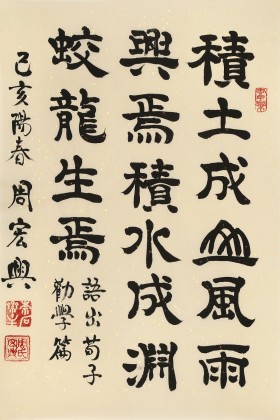 積土成山風雨
興焉積水成淵
蛟龍生焉
語出荀子
勸學篇
己亥陽春周宏興